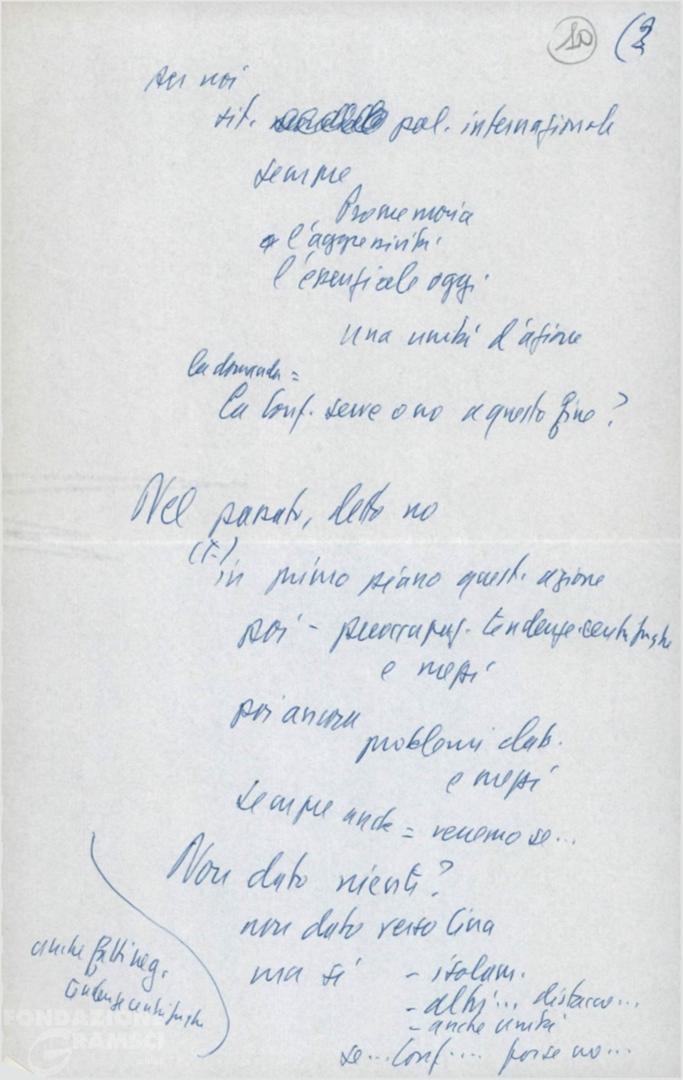 10 (2
per noi
sit. pol. internazionale
sempre
Promemoria
l'aggressività
l'essenziale oggi
una unità d'azione
La domanda =
La Conf. serve o no a questo fine?
Nel passato, detto no
in primo piano quest. azione
poi - preoccupaz. tendenze centrifughe
e mezzi
poi ancora
problemi elab.
e mezzi
sempre anche = vedremo se...
Non dato niente?
non dato verso Cina
ma sì - isolam.
- altri... distacco...
- anche unità
se... Conf.... forse no...
anche fatti neg.
tendenze centrifughe
FONDAZIONE
GRAMSCI